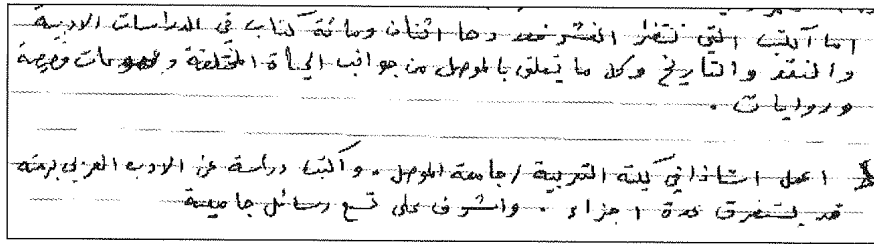 اما الكتب التي تنتظر النشر فعددها اثنان ومائة كتاب في الدراسات الادبية
والنقد والتاريخ وكل ما يتعلق بالموصل من جوانب الحياة المختلفة و مجموعات قصصية
وروايات .
اعمل استاذا في كلية التربية / جامعة الموصل . واكتب دراسة عن الادب العربي برمته
قد تستغرق عدة اجزاء . واشرف على تسع رسائل جامعية